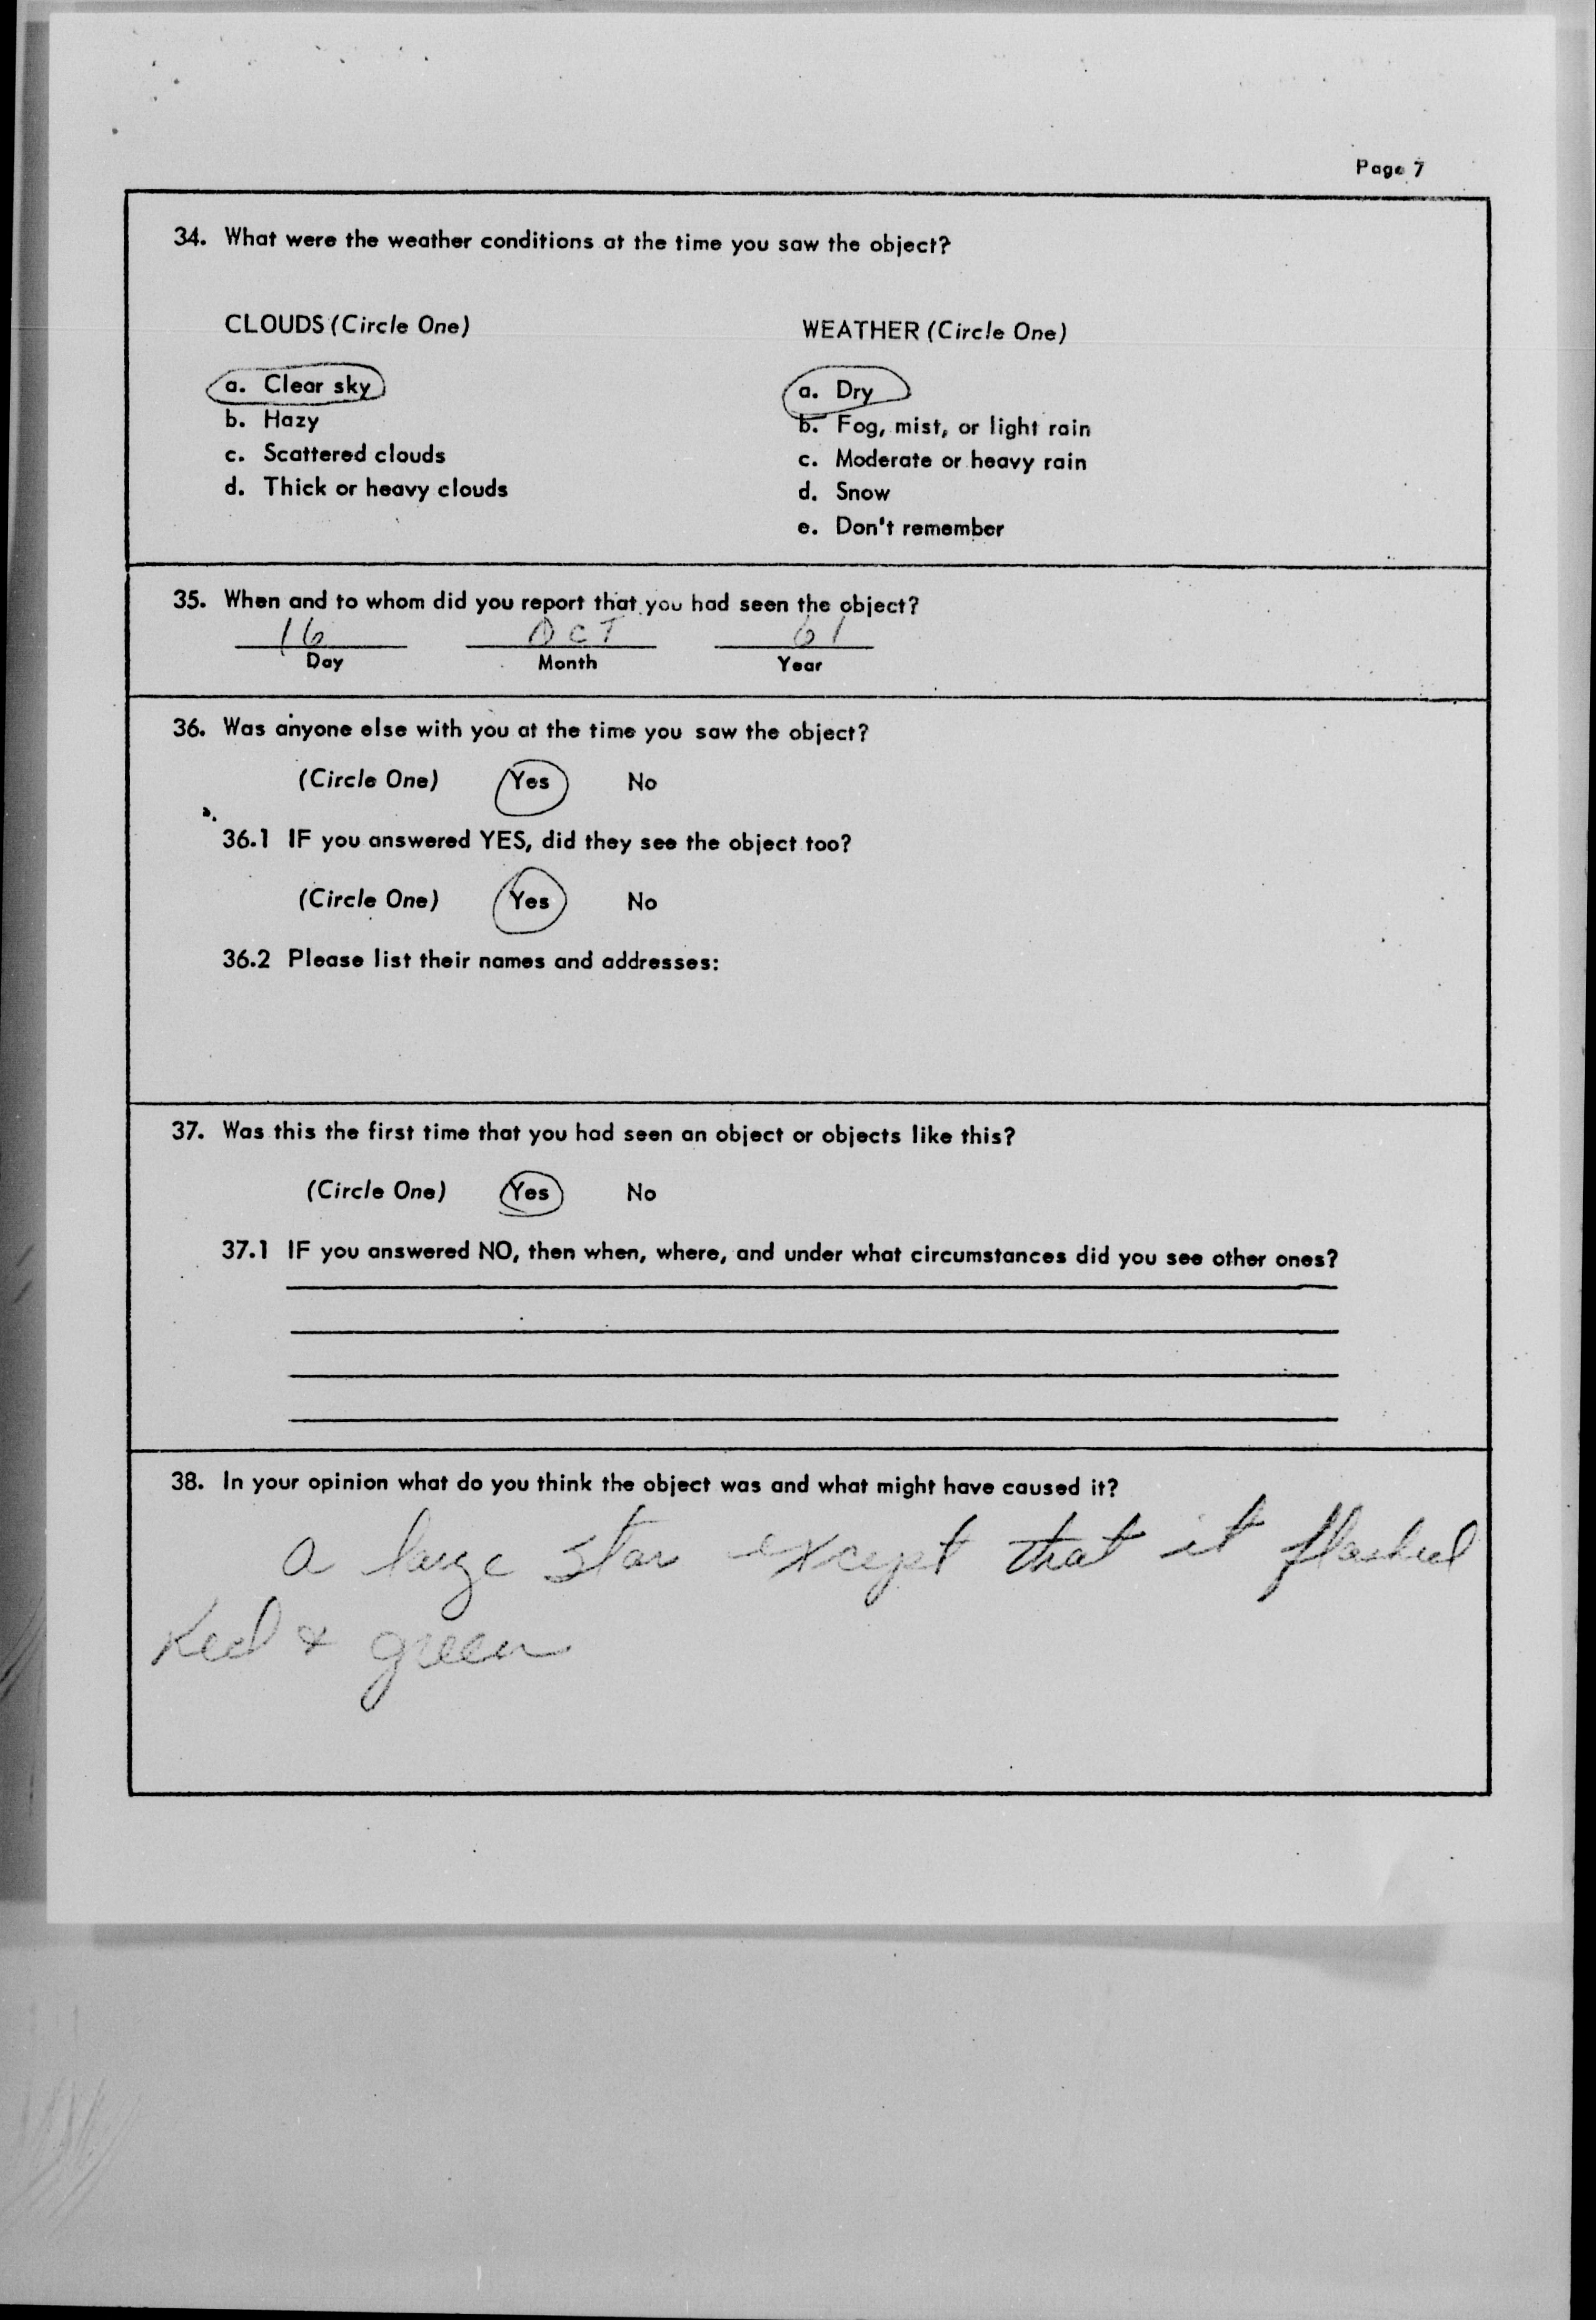 Page 7
34. What were the weather conditions at the time you saw the object?
CLOUDS (Circle One)
a. Clear sky
b. Hazy
c. Scattered clouds
d. Thick or heavy clouds
WEATHER (Circle One)
a. Dry
b. Fog, mist, or light rain
c. Moderate or heavy rain
d. Snow
e. Don't remember
35. When and to whom did you report that you had seen the object?
16 OCT 61
Day Month Year
36. Was anyone else with you at the time you saw the object?
(Circle One) Yes No
36.1 IF you answered YES, did they see the object too?
(Circle One) Yes No
36.2 Please list their names and addresses:
37. Was this the first time that you had seen an object or objects like this?
(Circle One) Yes No
37.1 IF you answered NO, then when, where, and under what circumstances did you see other ones?
38. In your opinion what do you think the object was and what might have caused it?
a large star except that it flashed
Red & green